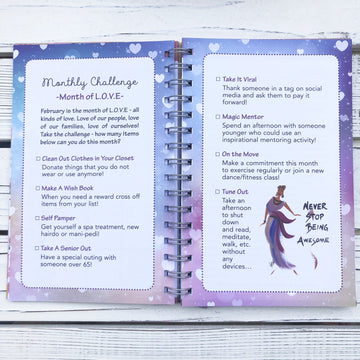 Monthly Challenge
-Month of L.O.V.E-
February is the month of L.O.V.E - all
kinds of love. Love of our people, love
of our families, love of ourselves!
Take the challenge - how many items
below can you do this month?
Clean Out Clothes in Your Closet
Donate things that you do not
wear or use anymore!
Make A Wish Book
When you need a reward cross off
items from your list!
Self Pamper
Get yourself a spa treatment, new
hairdo or mani-pedi!
Take A Senior Out
Have a special outing with
someone over 65!
Take It Viral
Thank someone in a tag on social
media and ask them to pay it
forward!
Magic Mentor
Spend an afternoon with someone
younger who could use an
inspirational mentoring activity!
On the Move
Make a commitment this month
to exercise regularly or join a new
dance/fitness class!
Tune Out
Take an
afternoon
to shut
down
and read,
meditate,
walk, etc.
without
any
devices...
NEVER
STOP
BEING
AWESOME